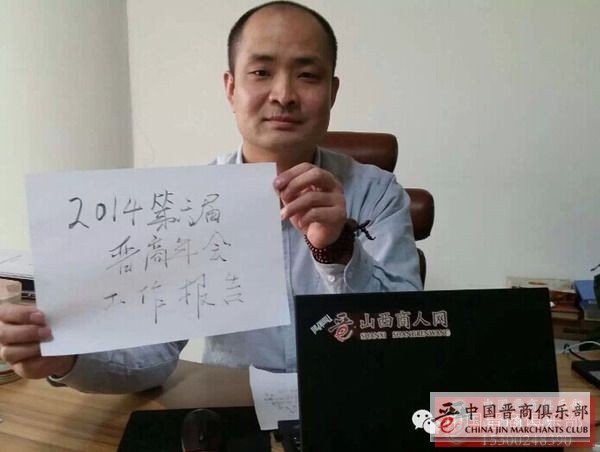 2014第六届
晋商年会
工作报告
晋 山西商人网
SHANXI SHANGRENWANG
晋 中国晋商俱乐部
CHINA JIN MARCHANTS CLUB
15300248390